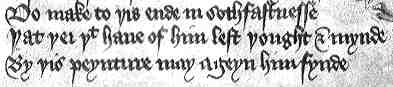 Do make to yis ende in sothfastnesse
Yat yei yt haue of him left yought & mynde
By yis peynture may ageyn him fynde